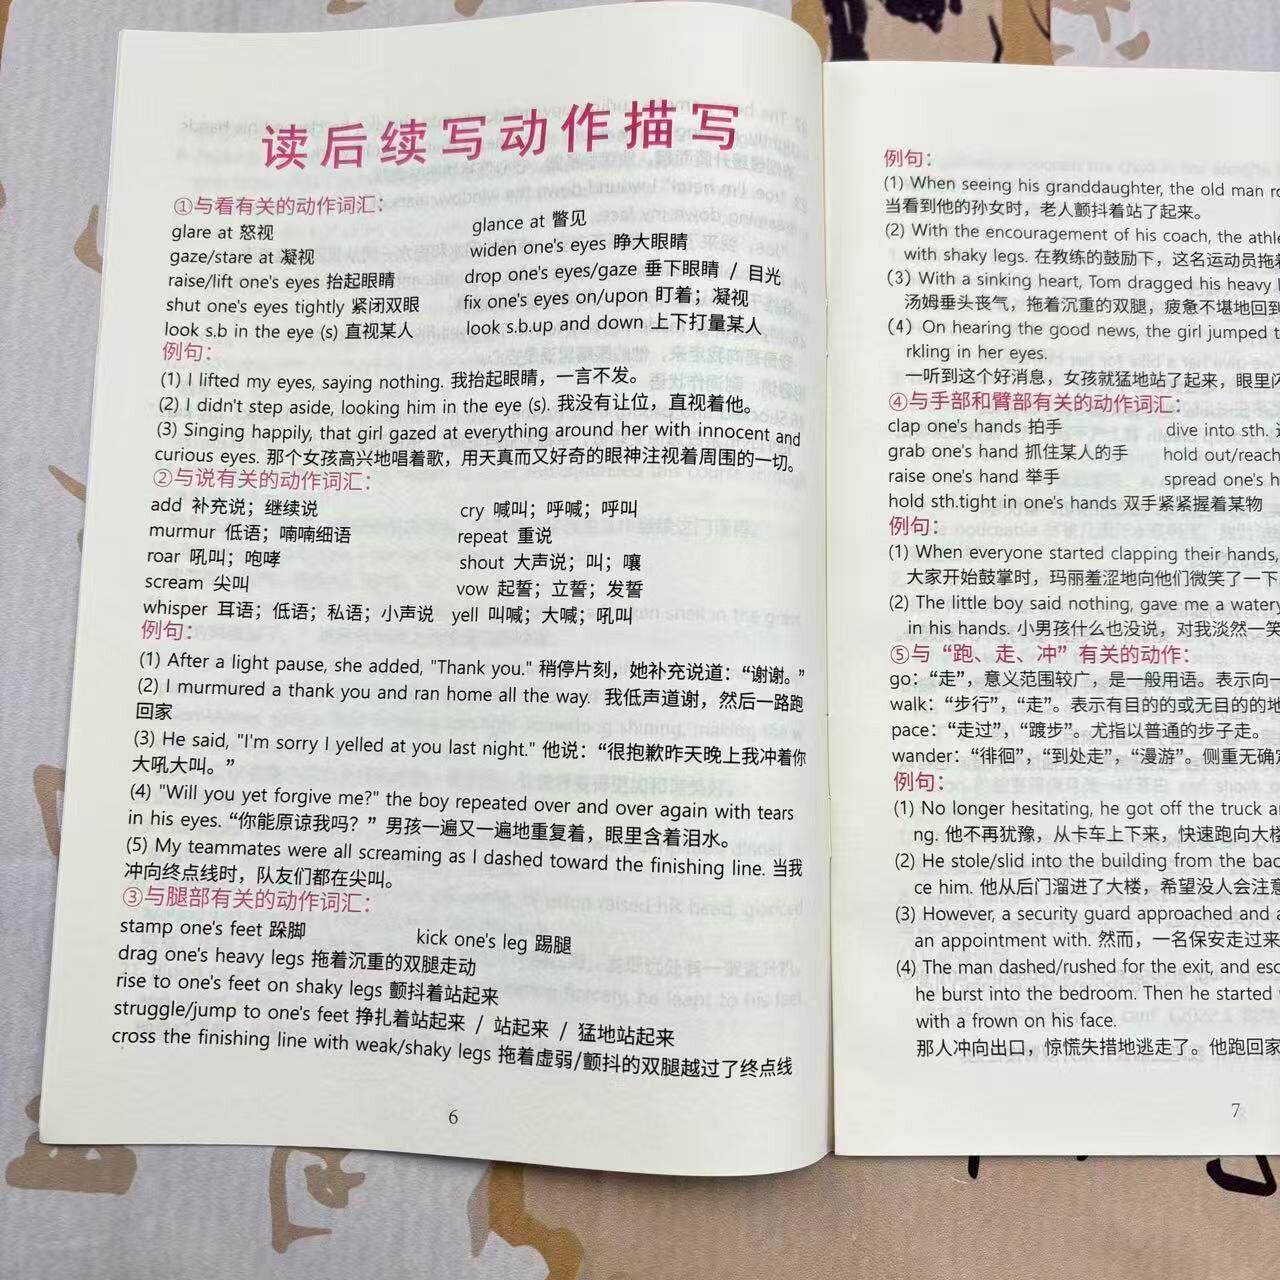 读后续写动作描写
①与看有关的动作词汇：
glare at 怒视
glance at 瞥见
gaze/stare at 凝视
widen one's eyes 睁大眼睛
raise/lift one's eyes 抬起眼睛
drop one's eyes/gaze 垂下眼睛 / 目光
shut one's eyes tightly 紧闭双眼
fix one's eyes on/upon 盯着；凝视
look s.b in the eye (s) 直视某人
look s.b.up and down 上下打量某人
例句：
(1) I lifted my eyes, saying nothing. 我抬起眼睛，一言不发。
(2) I didn't step aside, looking him in the eye (s). 我没有让位，直视着他。
(3) Singing happily, that girl gazed at everything around her with innocent and
curious eyes. 那个女孩高兴地唱着歌，用天真而又好奇的眼神注视着周围的一切。
②与说有关的动作词汇：
add 补充说；继续说
cry 喊叫；呼喊；呼叫
murmur 低语；喃喃细语
repeat 重说
roar 吼叫；咆哮
shout 大声说；叫；嚷
scream 尖叫
vow 起誓；立誓；发誓
whisper 耳语；低语；私语；小声说
yell 叫喊；大喊；吼叫
例句：
(1) After a light pause, she added, "Thank you." 稍停片刻，她补充说道：“谢谢。”
(2) I murmured a thank you and ran home all the way. 我低声道谢，然后一路跑
回家
(3) He said, "I'm sorry I yelled at you last night." 他说：“很抱歉昨天晚上我冲着你
大吼大叫。”
(4) "Will you yet forgive me?" the boy repeated over and over again with tears
in his eyes. “你能原谅我吗？”男孩一遍又一遍地重复着，眼里含着泪水。
(5) My teammates were all screaming as I dashed toward the finishing line. 当我
冲向终点线时，队友们都在尖叫。
③与腿部有关的动作词汇：
stamp one's feet 跺脚
kick one's leg 踢腿
drag one's heavy legs 拖着沉重的双腿走动
rise to one's feet on shaky legs 颤抖着站起来
struggle/jump to one's feet 挣扎着站起来 / 站起来 / 猛地站起来
cross the finishing line with weak/shaky legs 拖着虚弱/颤抖的双腿越过了终点线
6
例句：
(1) When seeing his granddaughter, the old man ro
当看到他的孙女时，老人颤抖着站了起来。
(2) With the encouragement of his coach, the athle
with shaky legs. 在教练的鼓励下，这名运动员拖着
(3) With a sinking heart, Tom dragged his heavy l
汤姆垂头丧气，拖着沉重的双腿，疲惫不堪地回到
(4) On hearing the good news, the girl jumped t
rkling in her eyes.
一听到这个好消息，女孩就猛地站了起来，眼里闪
④与手部和臂部有关的动作词汇：
clap one's hands 拍手
dive into sth.
grab one's hand 抓住某人的手
hold out/reach
raise one's hand 举手
spread one's h
hold sth.tight in one's hands 双手紧紧握着某物
例句：
(1) When everyone started clapping their hands,
大家开始鼓掌时，玛丽羞涩地向他们微笑了一下
(2) The little boy said nothing, gave me a watery
in his hands. 小男孩什么也没说，对我淡然一笑
⑤与“跑、走、冲”有关的动作：
go：“走”，意义范围较广，是一般用语。表示向一
walk：“步行”，“走”。表示有目的的或无目的的地
pace：“走过”，“踱步”。尤指以普通的步子走。
wander：“徘徊”，“到处走”，“漫游”。侧重无确定
例句：
(1) No longer hesitating, he got off the truck an
ng. 他不再犹豫，从卡车上下来，快速跑向大楼
(2) He stole/slid into the building from the bac
ce him. 他从后门溜进了大楼，希望没人会注意
(3) However, a security guard approached and a
an appointment with. 然而，一名保安走过来
(4) The man dashed/rushed for the exit, and esc
he burst into the bedroom. Then he started
with a frown on his face.
那人冲向出口，惊慌失措地逃走了。他跑回家
7